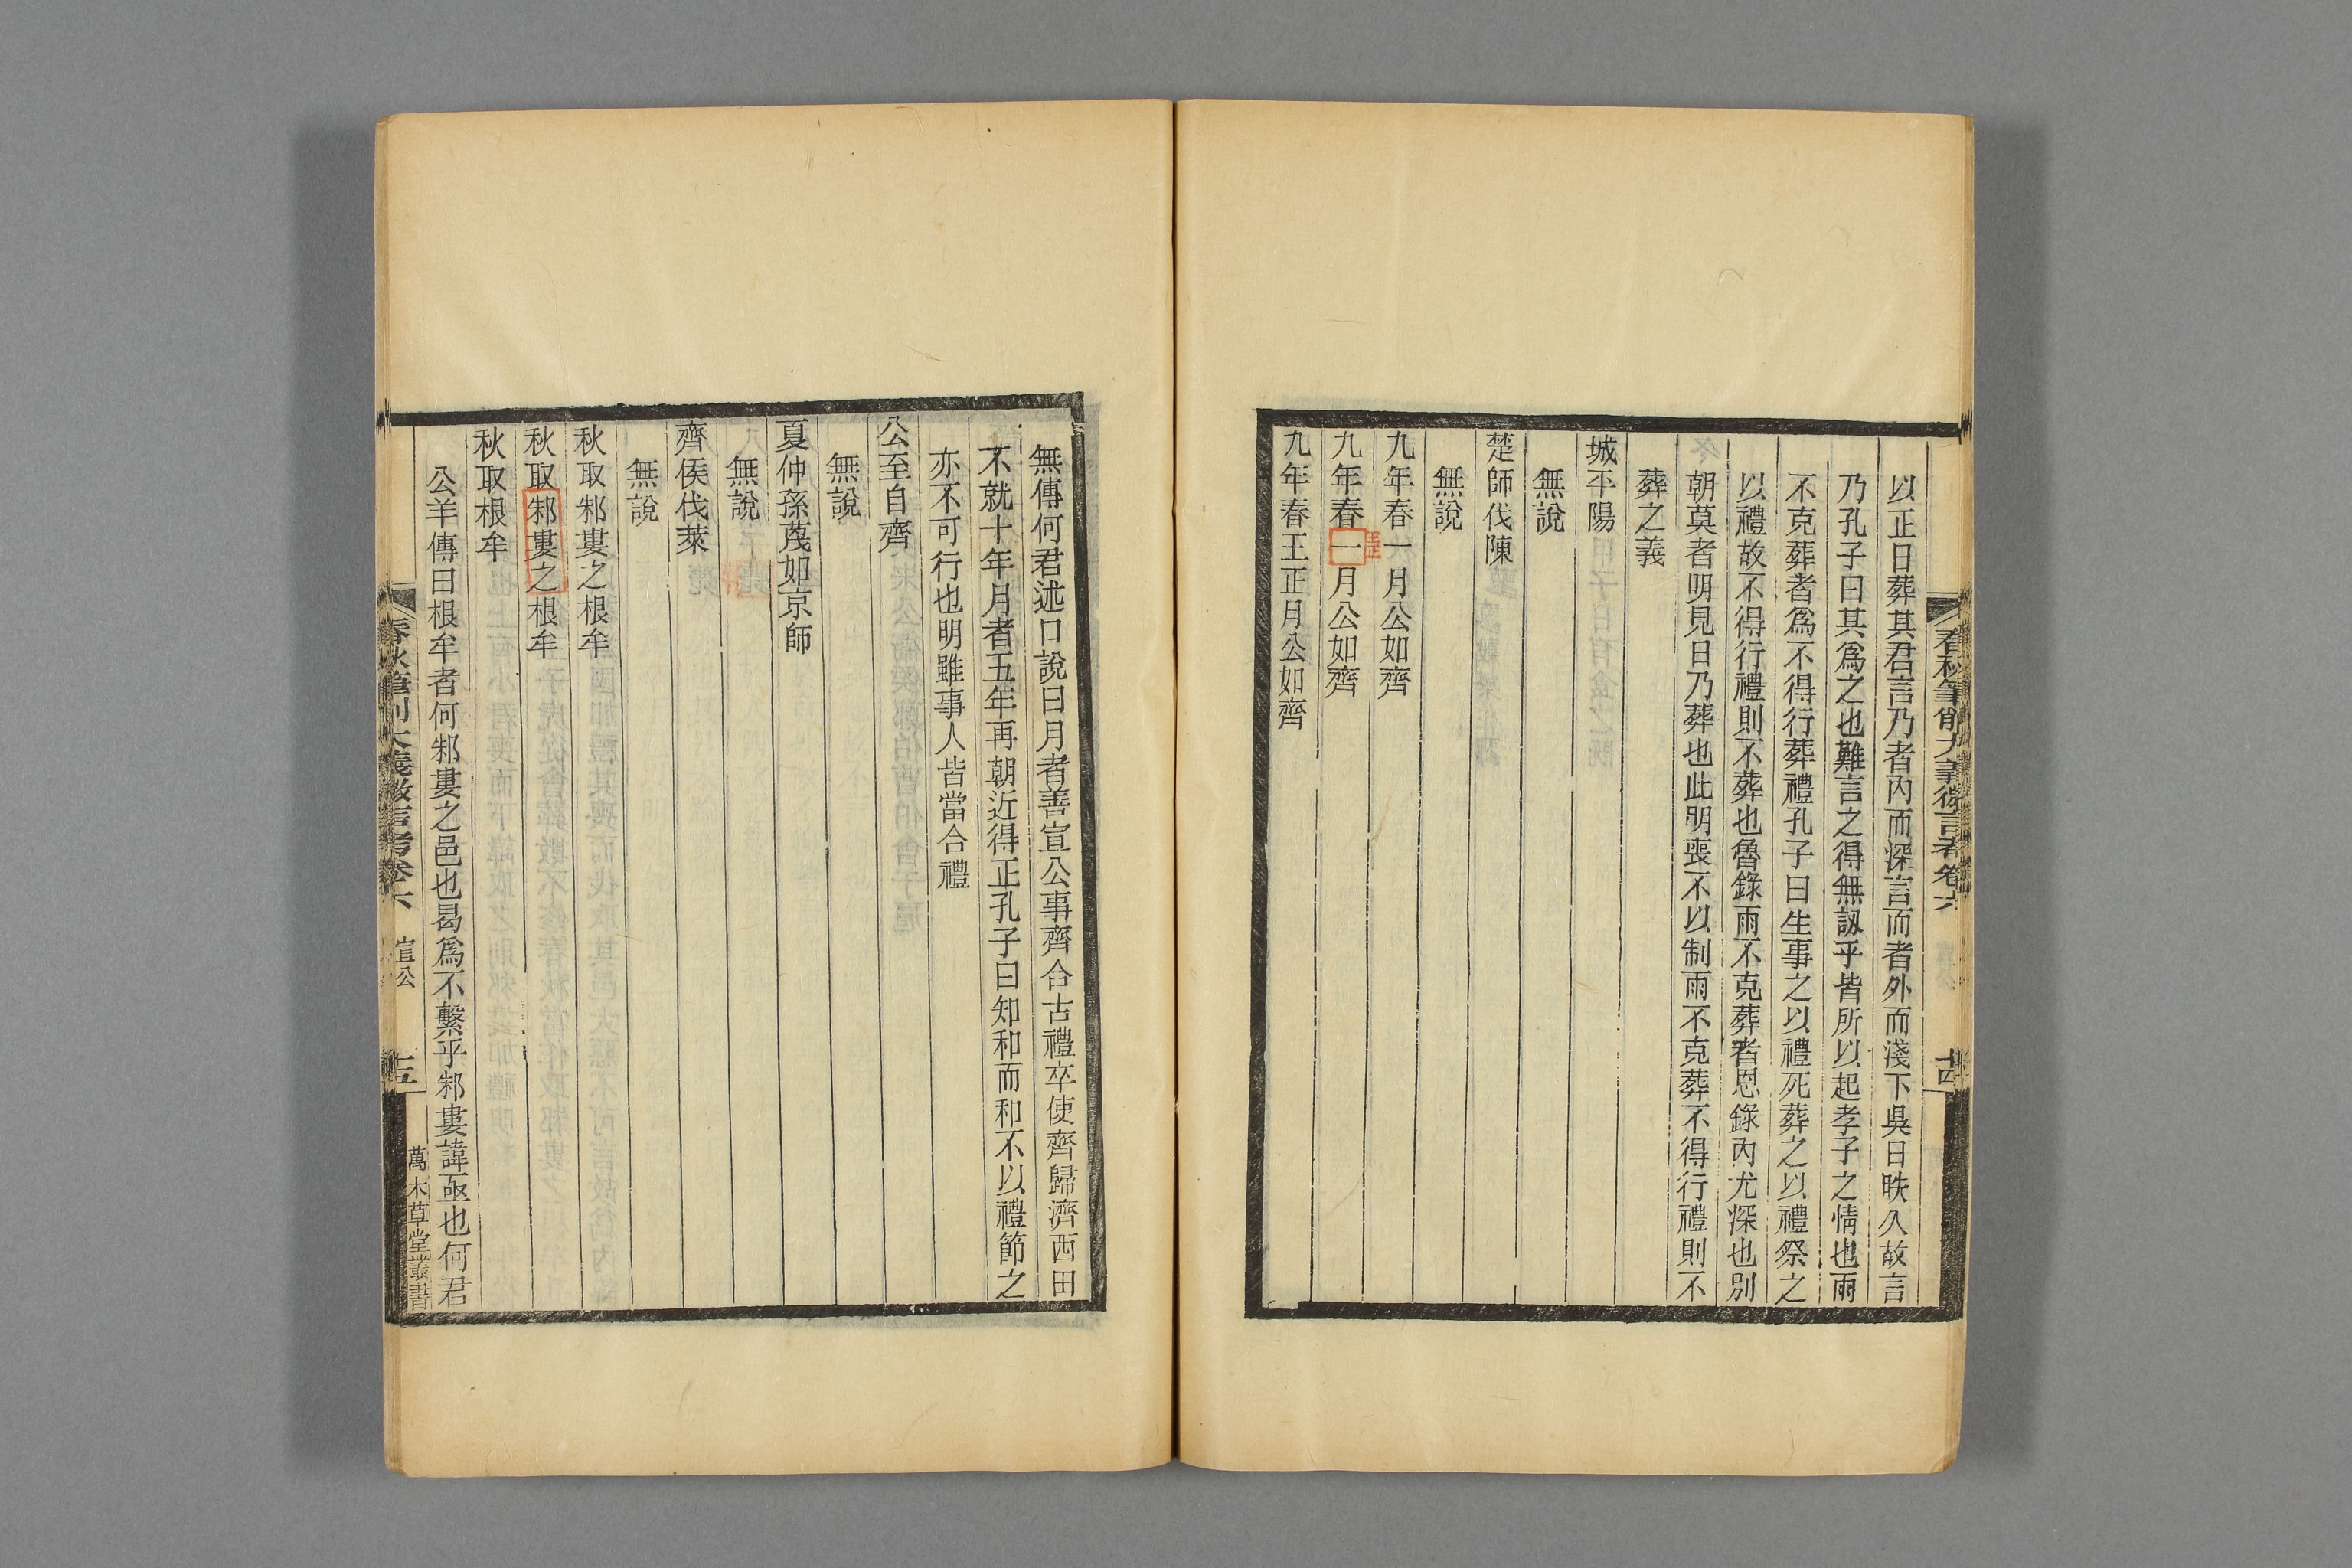 春秋筆削大義微言考卷六
十四
以正日葬其君言乃者內而深言而者外而淺下吳日昳久故言
乃孔子曰其爲之也難言之得無訒乎皆所以起孝子之情也雨
不克葬者爲不得行葬禮孔子曰生事之以禮死葬之以禮祭之
以禮故不得行禮則不葬也魯錄雨不克葬者恩錄內尤深也別
朝莫者明見日乃葬也此明喪不以制雨不克葬不得行禮則不
葬之義
城平陽
無說
楚師伐陳
無說
九年春一月公如齊
九年春一月公如齊
九年春王正月公如齊
無傳何君述口說曰月者善宣公事齊合古禮卒使齊歸濟西田
不就十年月者五年再朝近得正孔子曰知和而和不以禮節之
亦不可行也明雖事人皆當合禮
公至自齊
無說
夏仲孫蔑如京師
無說
齊侯伐萊
無說
秋取邾婁之根牟
秋取邾婁之根牟
秋取根牟
公羊傳曰根牟者何邾婁之邑也曷爲不繫乎邾婁諱亟也何君
春秋筆削大義微言考卷六
宣公
十五
萬木草堂叢書